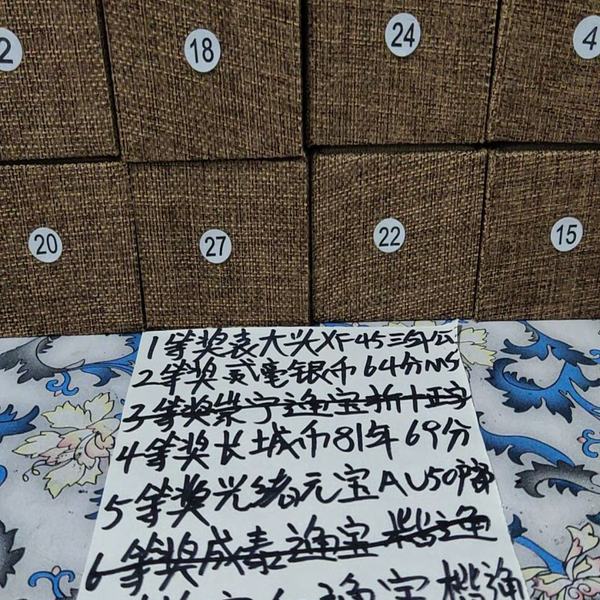 2
18
24
4
20
27
22
15
1等奖袁大头XF45三年公
2等奖贰毫银币64分MS
3等奖崇宁通宝折十
4等奖长城币81年69分
5等奖光绪元宝AU50
6等奖咸泰通宝
通宝楷通